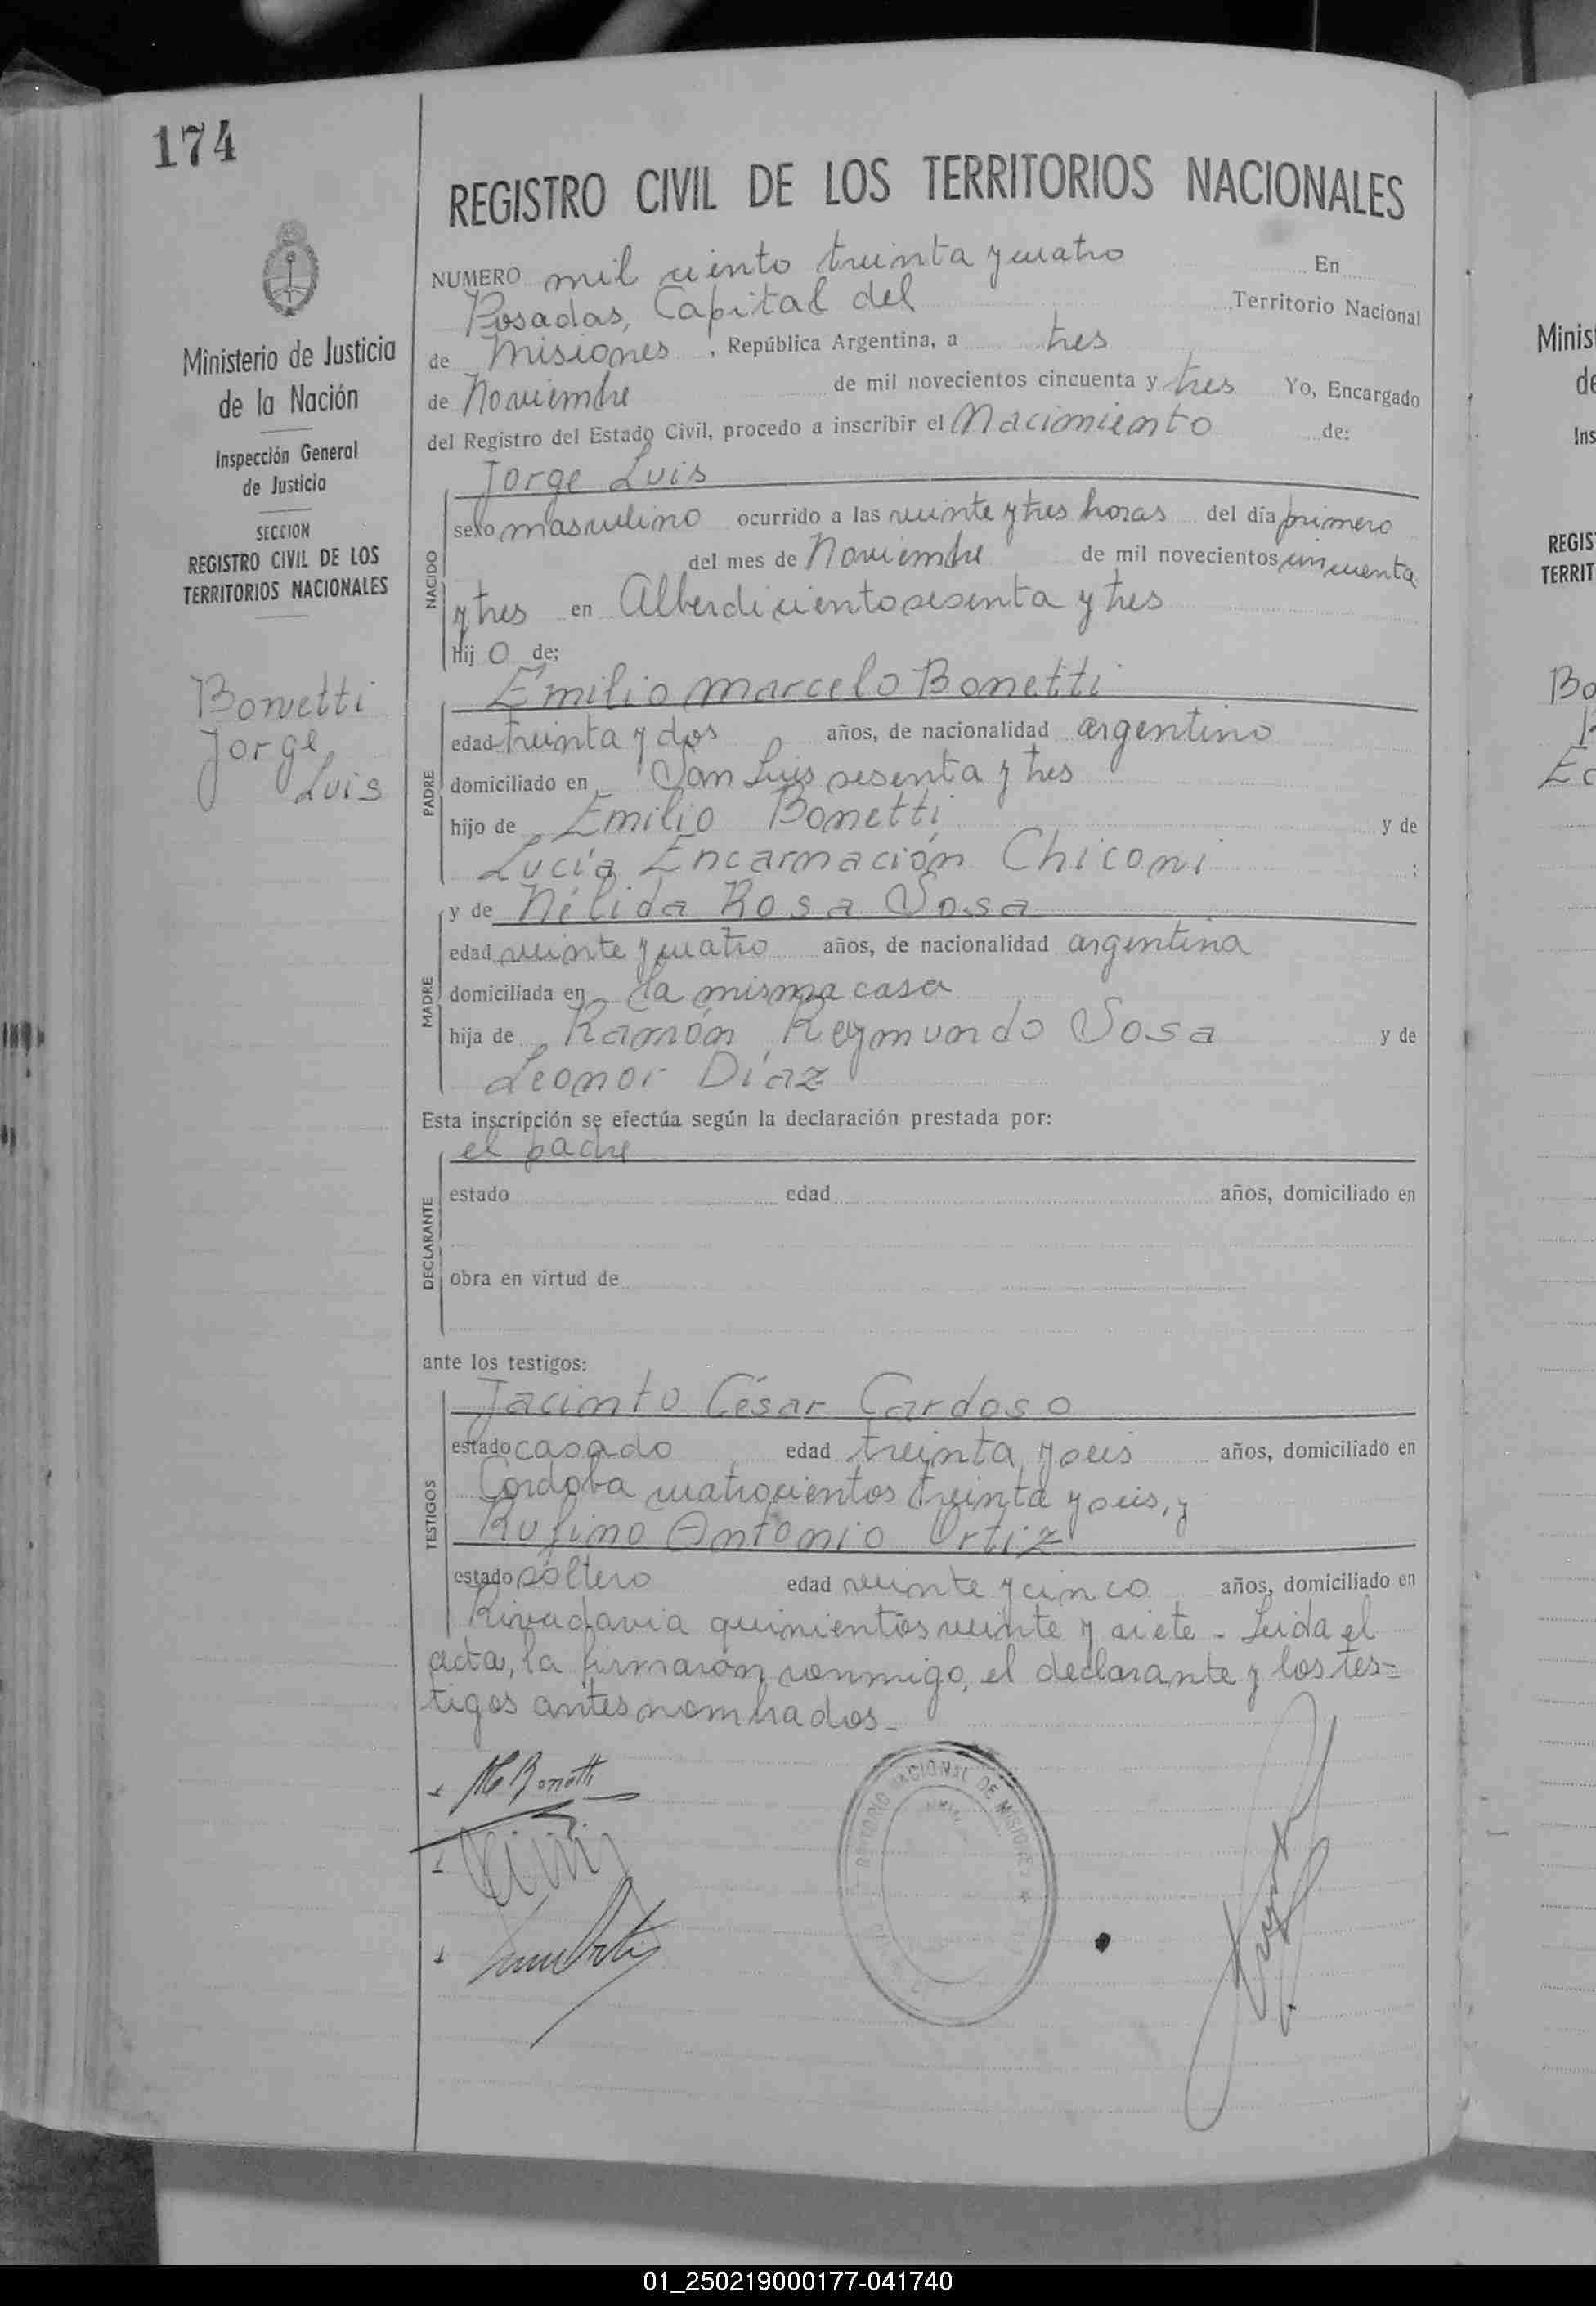 174
Ministerio de Justicia
de la Nación
Inspección General
de Justicia
SECCION
REGISTRO CIVIL DE LOS
TERRITORIOS NACIONALES
Bonetti
Jorge
Luis
REGISTRO CIVIL DE LOS TERRITORIOS NACIONALES
NUMERO mil ciento treinta y cuatro En
Posadas, Capital del Territorio Nacional
de Misiones, República Argentina, a tres
de Noviembre de mil novecientos cincuenta y tres Yo, Encargado
del Registro del Estado Civil, procedo a inscribir el Nacimiento de:
Jorge Luis
NACIDO
sexo masculino ocurrido a las veinte y tres horas del día primero
del mes de Noviembre de mil novecientos cincuenta
y tres en Alberdi ciento sesenta y tres
hij o de:
Emilio Marcelo Bonetti
PADRE
edad treinta y dos años, de nacionalidad argentino
domiciliado en San Luis sesenta y tres
hijo de Emilio Bonetti y de
Lucía Encarnación Chiconi ;
y de Nélida Rosa Sosa
MADRE
edad veinte y cuatro años, de nacionalidad argentina
domiciliada en la misma casa
hija de Ramón Reymundo Sosa y de
Leonor Díaz
Esta inscripción se efectúa según la declaración prestada por:
el padre
DECLARANTE
estado edad años, domiciliado en
obra en virtud de
ante los testigos:
Jacinto César Cardoso
TESTIGOS
estado casado edad treinta y seis años, domiciliado en
Córdoba cuatrocientos treinta y seis, y
Rufino Antonio Ortiz
estado soltero edad veinte y cinco años, domiciliado en
Rivadavia quinientos veinte y siete - Leida el
acta, la firmaron conmigo, el declarante y los tes=
tigos antes nombrados.-
Bonetti
NACIONAL DE MISIONES
Minis
de
Ins
REGIS
TERRIT
Bo
01_250219000177-041740